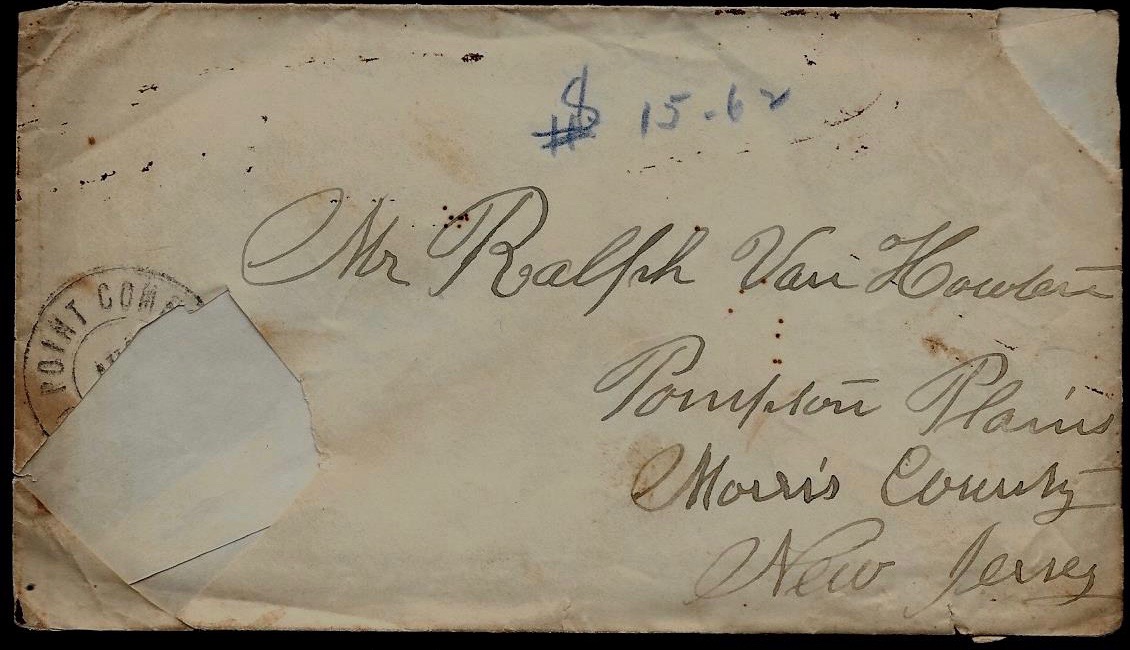 $ 15.62
Mr Ralph Van Houten
POINT COM
Pompton Plains
Morris County
New Jersey